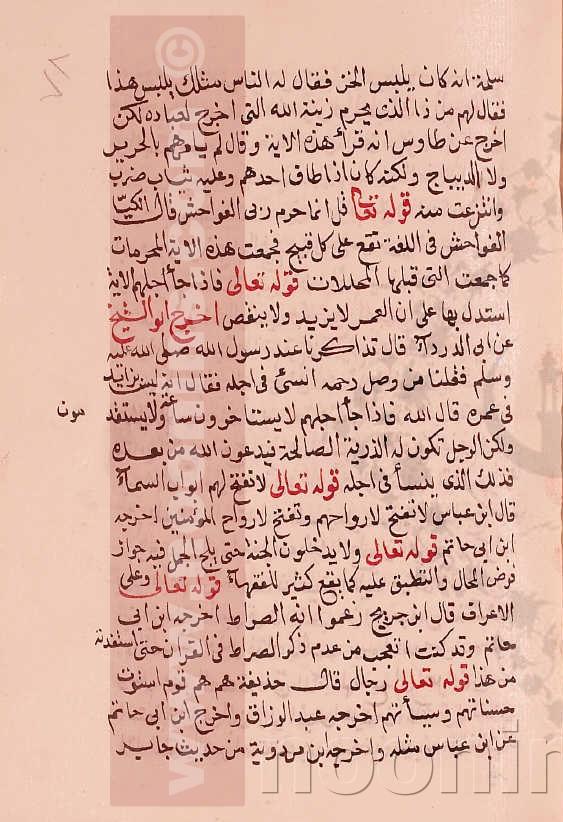 سلمة انه كان يلبس الخز فقال له الناس مثلك يلبس هذا
فقال لهم من ذا الذى يحرم زينة الله التى اخرج لعباده لكن
اخرج عن طاوس انه قرأ هذه الاية وقال لم يامرهم بالحرير
ولا الديباج ولكنه كان اذا طاف احدهم وعليه ثياب ضرب
وانتزعت منه قوله تعالى قل انما حرم ربى الفواحش قال الكيا
الفواحش فى اللغة تقع على كل قبيح فجمعت هذه الاية المحرمات
كما جمعت التى قبلها المحللات قوله تعالى فاذا جأ اجلهم الاية
استدل بها على ان العمر لا يزيد ولا ينقص اخرج ابو الشيخ
عن ابى الدردآء قال تذاكرنا عند رسول الله صلى الله عليه
وسلم فقلنا من وصل رحمه انسئ فى اجله فقال انه ليس بزائد
فى عمره قال الله فاذا جأ اجلهم لا يستاخرون ساعة ولا يستقد
مون
ولكن الرجل تكون له الذرية الصالحة فيدعون الله من بعده
فذلك الذى ينسأ فى اجله قوله تعالى لا تفتح لهم ابواب السمآء
قال ابن عباس لا تفتح لارواحهم وتفتح لارواح المؤمنين اخرجه
ابن ابى حاتم قوله تعالى ولا يدخلون الجنة حتى يلج الجمل فيه جواز
فرض المحال والتعليق عليه كما يقع كثير للفقهآء قوله تعالى وعلى
الاعراف قال ابن جريج زعموا انه الصراط اخرجه ابن ابى
حاتم وقد كنت اتعجب من عدم ذكر الصراط فى القرآن حتى استفدته
من هذا قوله تعالى رجال قال حذيفة هم هم قوم استوت
حسناتهم وسيأتهم اخرجه عبد الرزاق واخرج ابن ابى حاتم
عن ابن عباس مثله واخرجه ابن مردوية من حديث جابر
noorin